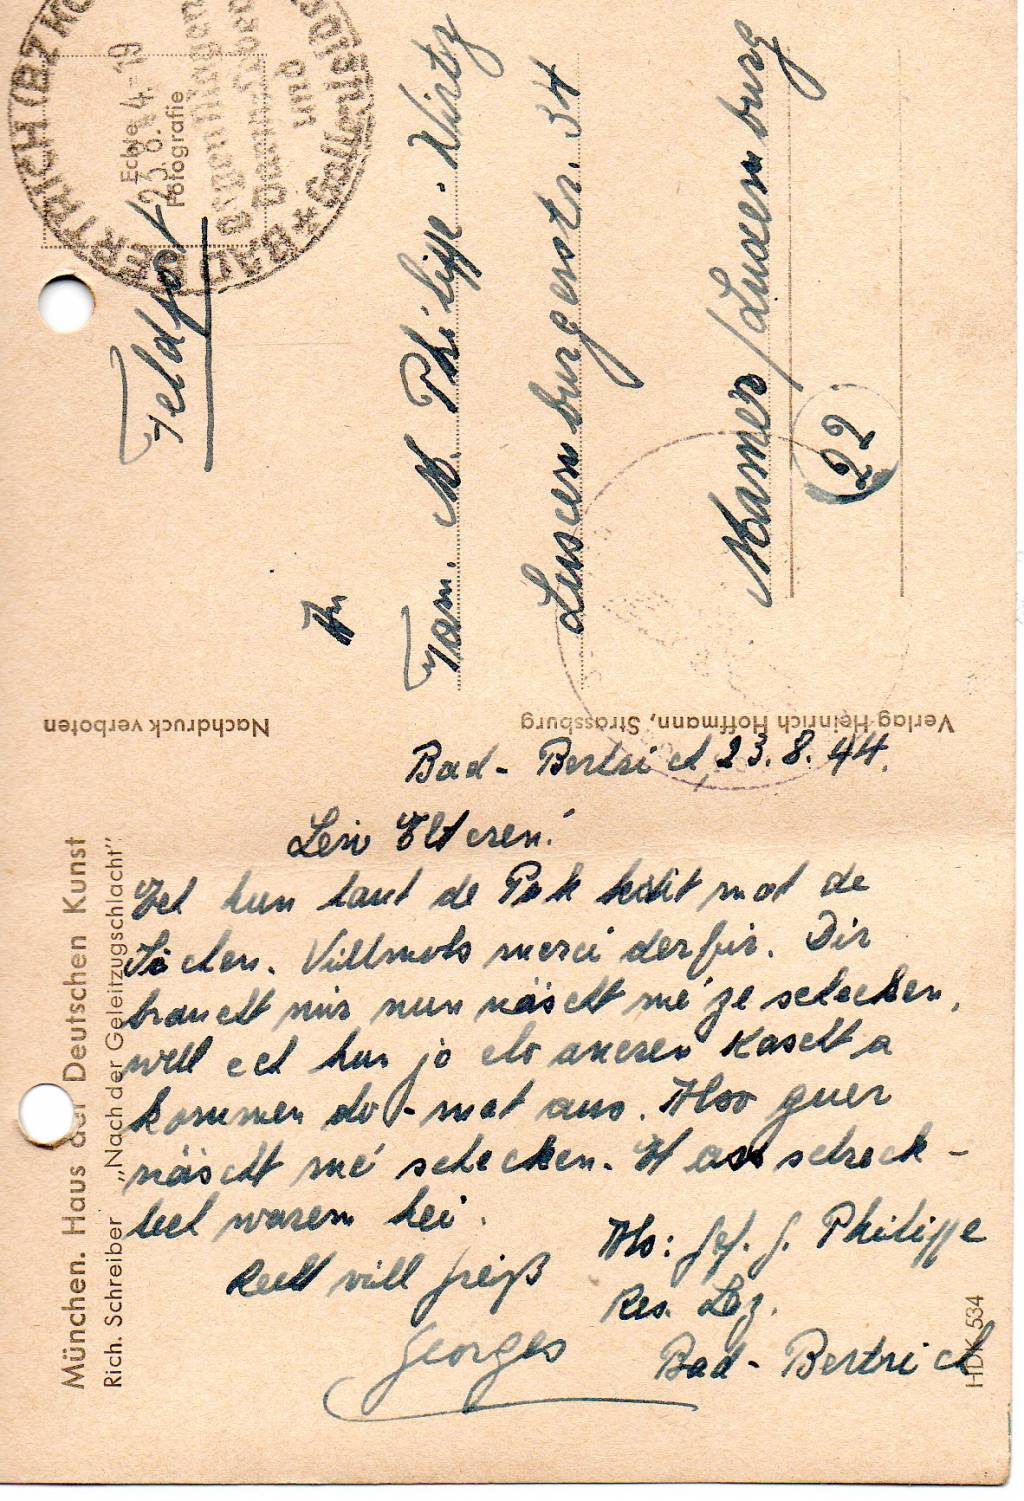 München. Haus der Deutschen Kunst
Rich. Schreiber „Nach der Geleitzugschlacht"
Nachdruck verboten
Verlag Heinrich Hoffmann, Strassburg
HDK 534
Echte
Fotografie
23.8.44-19
BAD BERTRICH
Feldpost
An
Fam. M. Philippe-Wirtz
Luxemburgerstr. 34
Mamer/Luxemburg
(22)
Bad-Bertrich, 23.8.44.
Leiw Elteren!
Ech hun haut de Pak kritt mat de
Sachen. Villmols merci derfir. Dir
braucht mir nun näscht mé ze schecken,
well ech hun jo elo aneren
kommen do-mat aus. Also guer
näscht mé schecken. Et ass schreck-
lech warem hei.
Recht vill greiß
Georges
Abs: Gef. J. Philippe
Res. Laz.
Bad-Bertrich